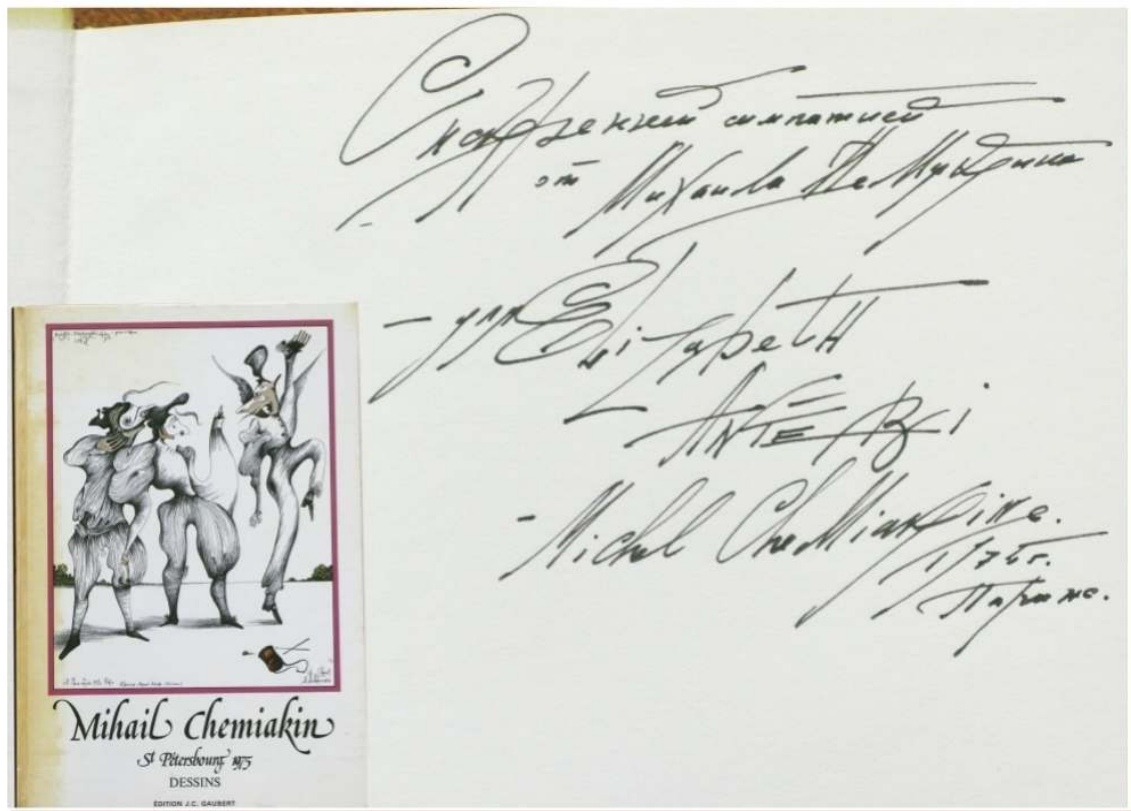 С искренней симпатией
от Михаила Шемякина
- для Elizabeth
ANTEBi
- Michel Chemiakine.
197 г.
Париж.
Mihail Chemiakin
St Pétersbourg 1975
DESSINS
ÉDITION J.C. GAUBERT